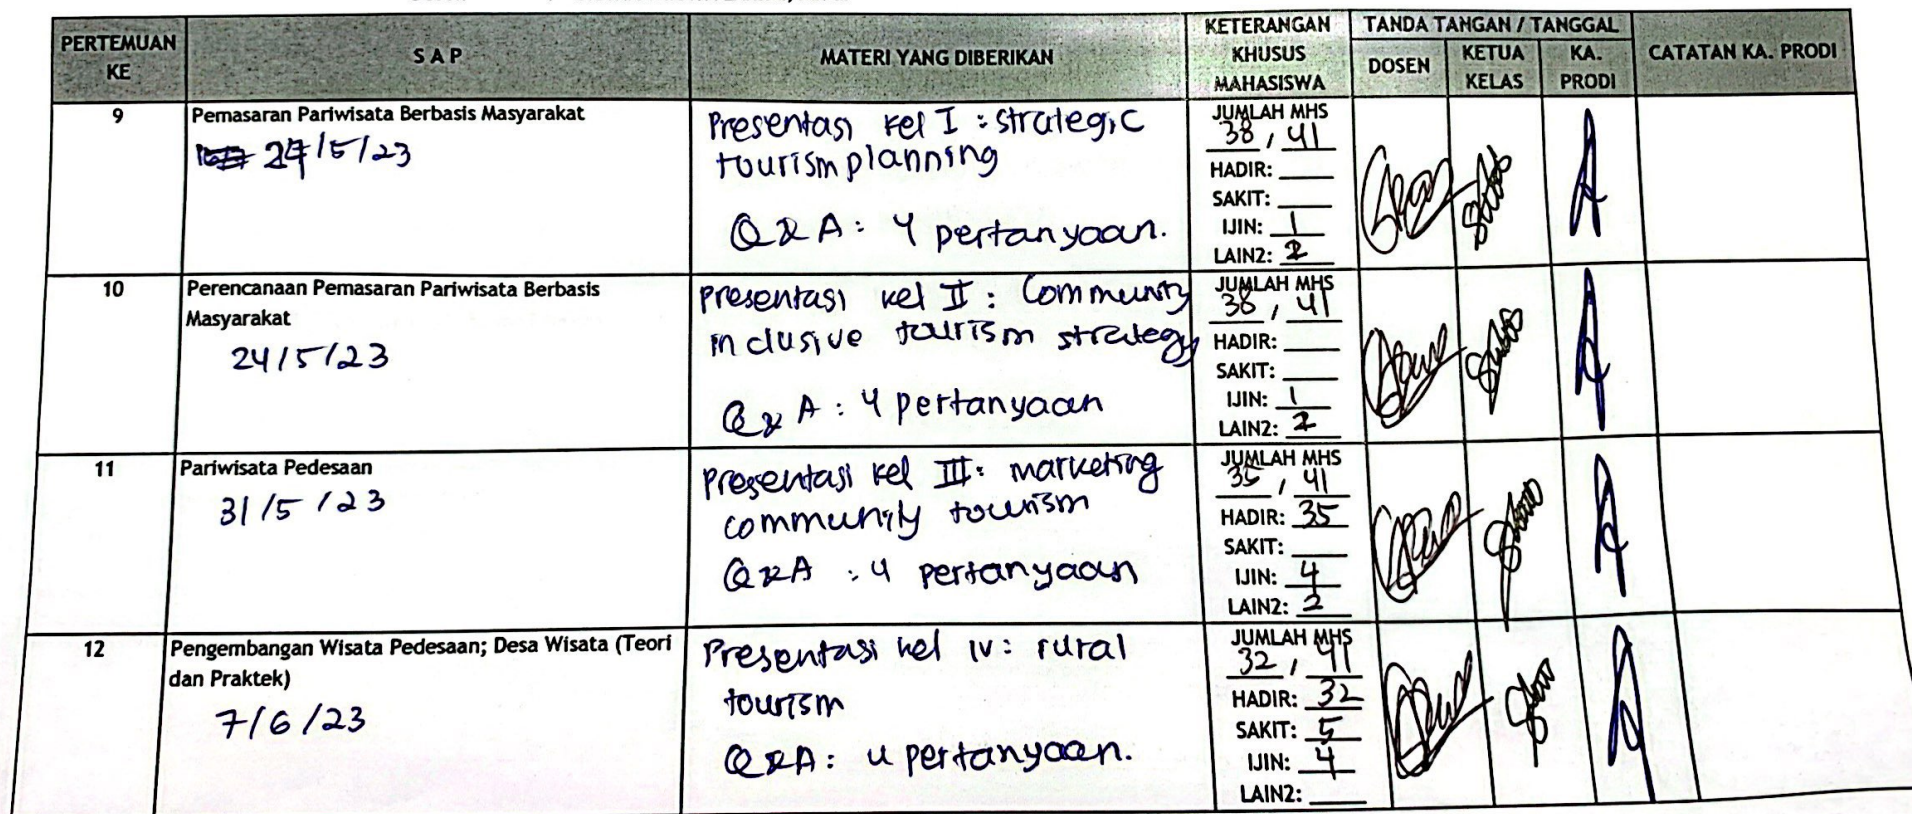 PERTEMUAN KE
S A P
MATERI YANG DIBERIKAN
KETERANGAN KHUSUS MAHASISWA
TANDA TANGAN / TANGGAL
DOSEN
KETUA KELAS
KA. PRODI
CATATAN KA. PRODI
9
Pemasaran Pariwisata Berbasis Masyarakat
24/5/23
Presentasi kel I : strategic
tourism planning
Q & A : 4 pertanyaan.
JUMLAH MHS
38 , 41
HADIR:
SAKIT:
IJIN: 1
LAIN2: 2
10
Perencanaan Pemasaran Pariwisata Berbasis
Masyarakat
24/5/23
Presentasi kel II : Community
inclusive tourism strategy
Q & A : 4 pertanyaan
JUMLAH MHS
38 , 41
HADIR:
SAKIT:
IJIN: 1
LAIN2: 2
11
Pariwisata Pedesaan
31/5/23
Presentasi kel III: marketing
community tourism
Q & A : 4 pertanyaan
JUMLAH MHS
35 , 41
HADIR: 35
SAKIT:
IJIN: 4
LAIN2: 2
12
Pengembangan Wisata Pedesaan; Desa Wisata (Teori
dan Praktek)
7/6/23
Presentasi kel IV: rural
tourism
Q & A : 4 pertanyaan.
JUMLAH MHS
32 , 41
HADIR: 32
SAKIT: 5
IJIN: 4
LAIN2: